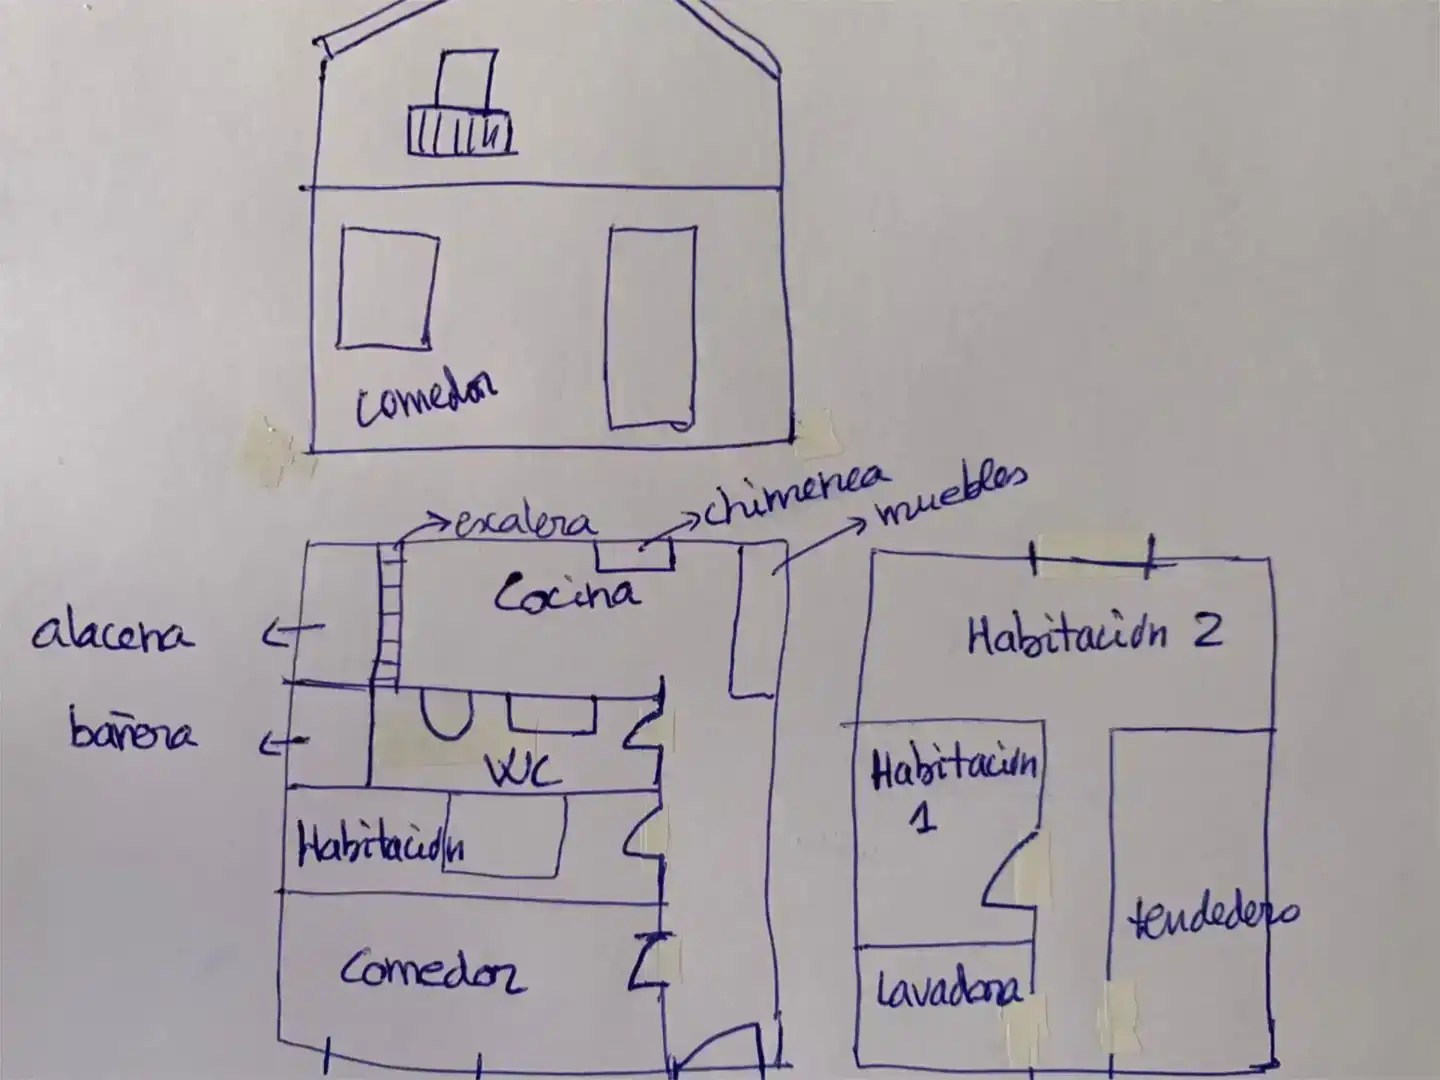 comedor
escalera
chimenea
muebles
Cocina
alacena
bañera
WC
Habitación
Comedor
Habitación 2
Habitación
1
tendedero
Lavadora